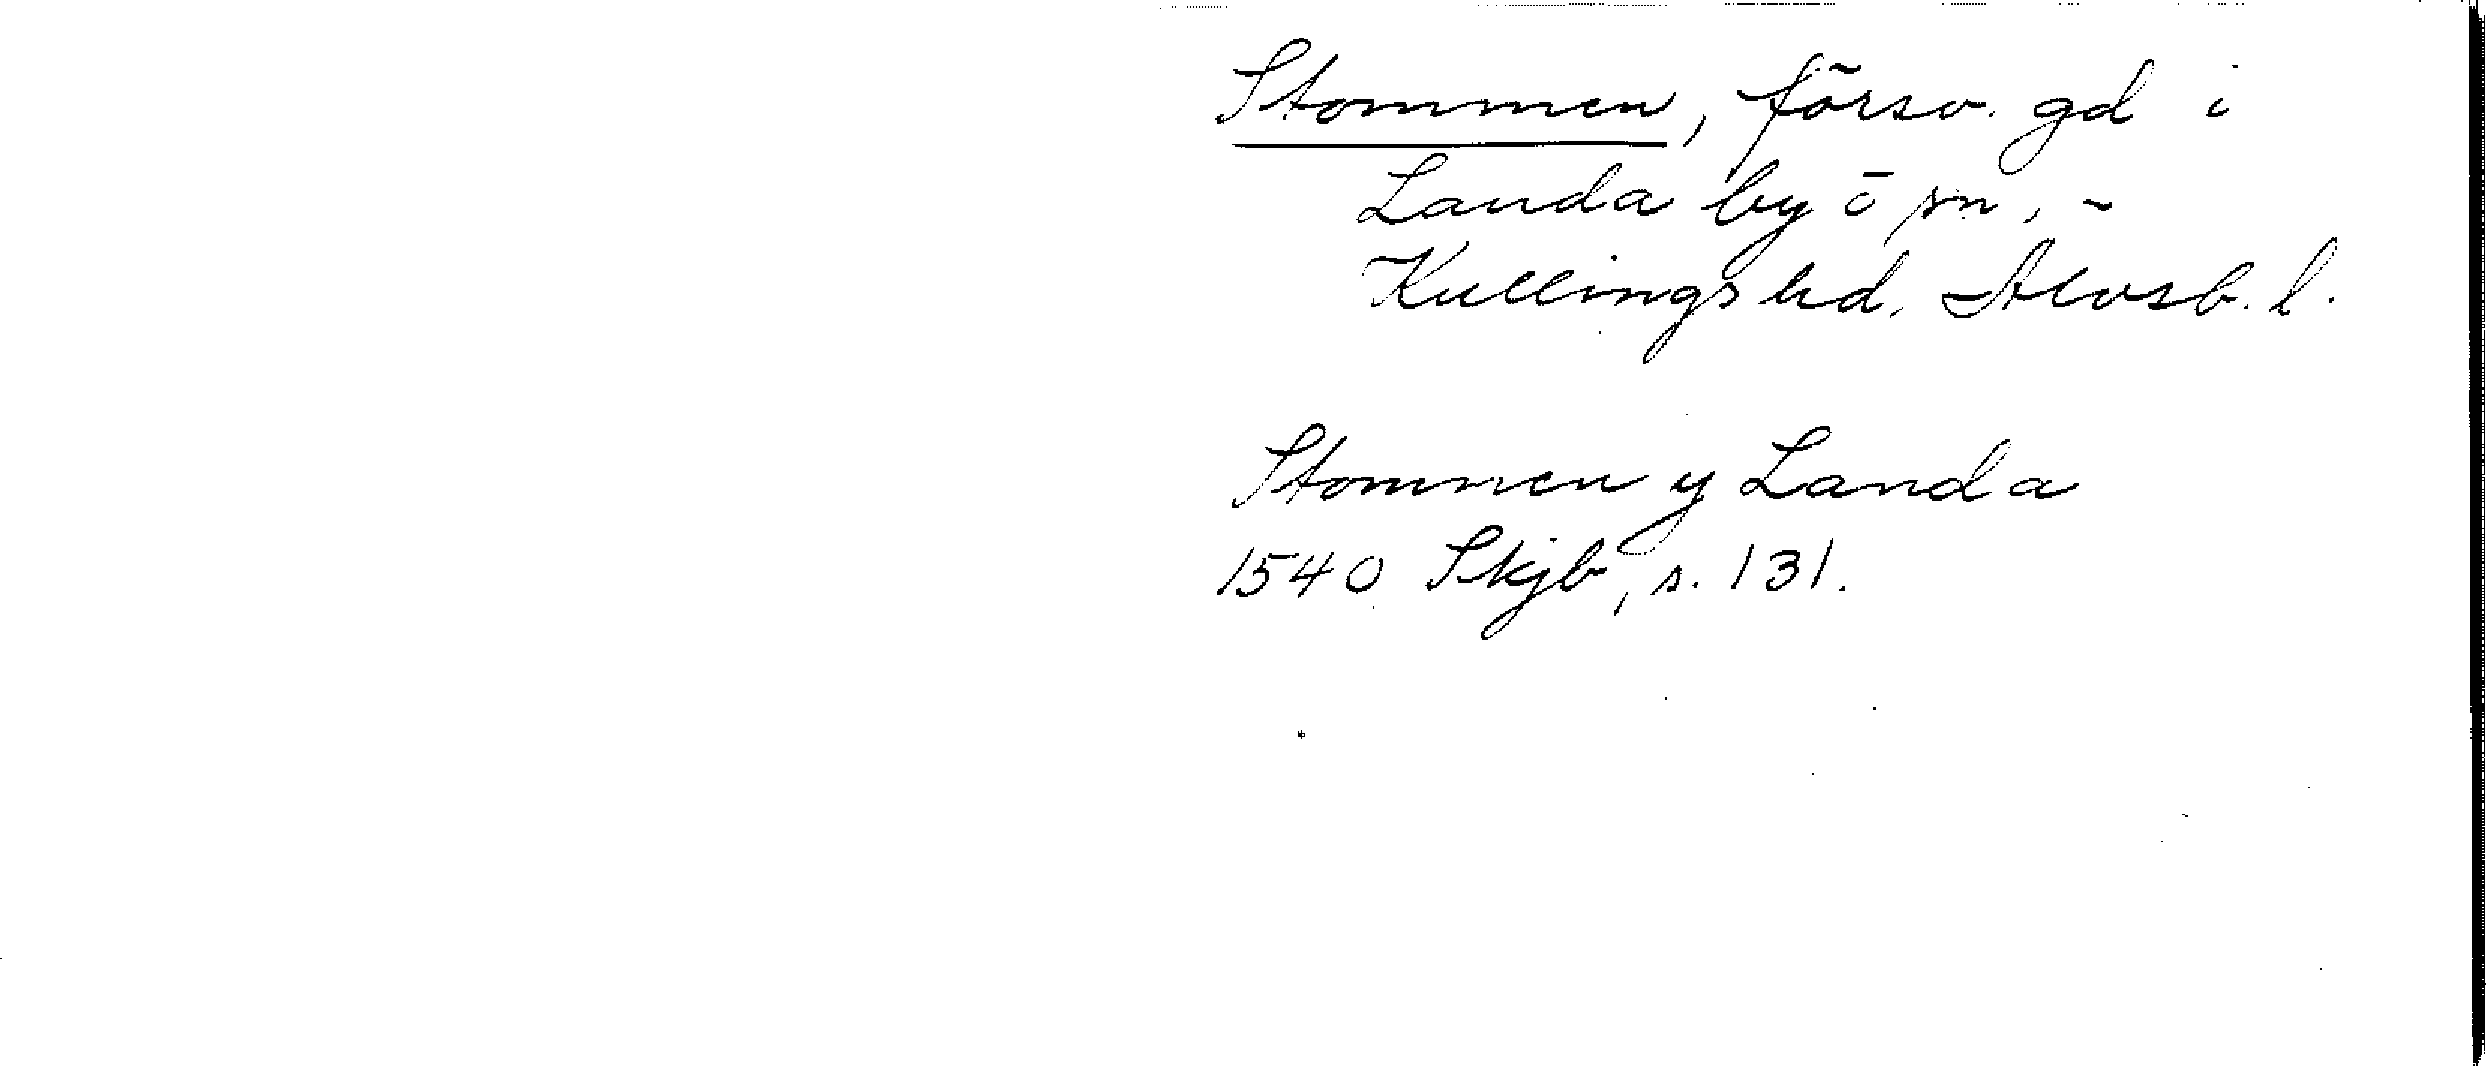 Stommen, försv. gd i
Landa by o sn,
Kullings hd. Älvsb. l.
Stommen y Landa
1540 Skjb, s. 131.